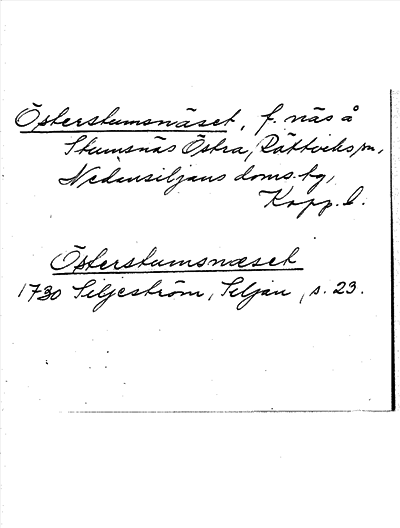 Österstumsnäset, f. näs å
Stumsnäs Östra, Rättviks sn,
Nedansiljans doms.hg,
Kopp. l.
Österstumsnæset
1730 Siljeström, Siljan, s. 23.